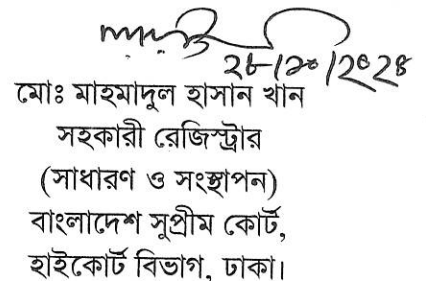 ২৮/১০/২০২৪
মোঃ মাহমাদুল হাসান খান
সহকারী রেজিস্ট্রার
(সাধারণ ও সংস্থাপন)
বাংলাদেশ সুপ্রীম কোর্ট,
হাইকোর্ট বিভাগ, ঢাকা।